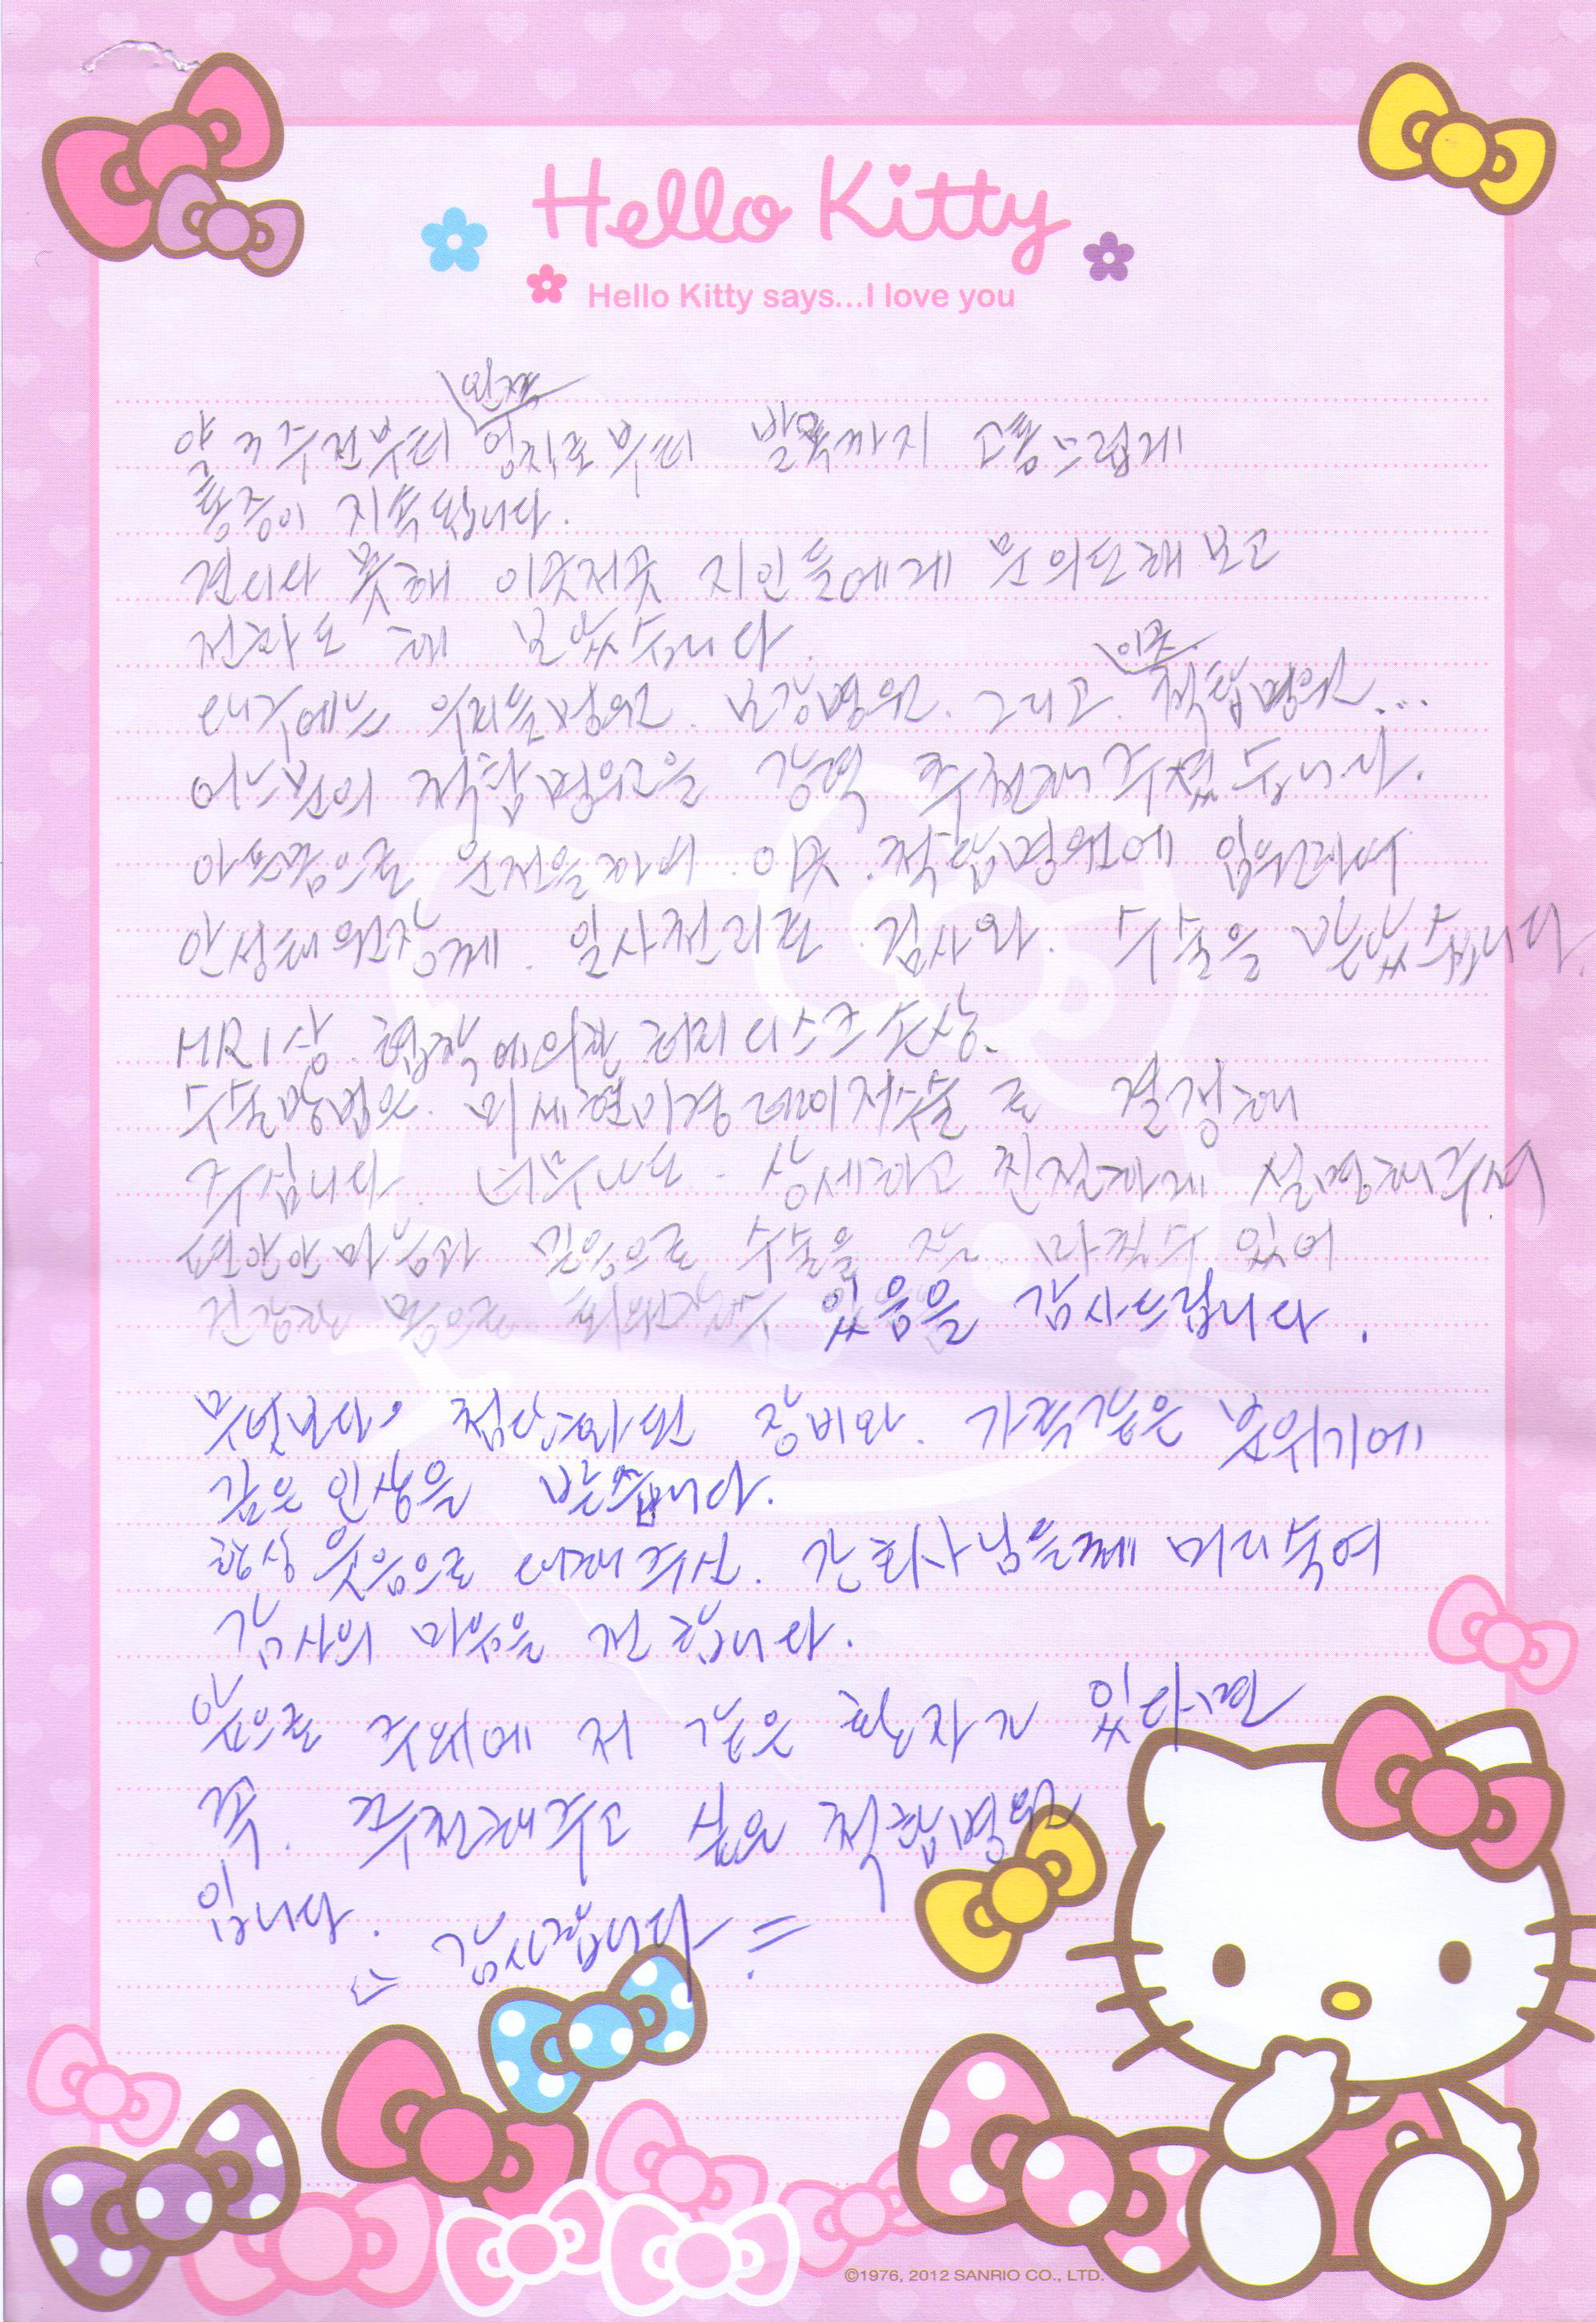 Hello Kitty
Hello Kitty says...I love you
왼쪽
약 2주전부터 엉치로부터 발목까지 고통스럽게
통증이 지속됩니다.
견디다 못해 이곳저곳 지인들에게 문의도해 보고
전화도 해 보았습니다.
이곳.
대구에는 우리들병원. 보강병원. 그리고. 척탑병원...
어느분의 척탑병원을 강력 추천해 주셨습니다.
아픔몸으로 운전을하여. 이곳. 척탑병원에 입원하여
안성태원장께. 일사천리로 검사와. 수술을 받았습니다.
MRI상. 협착에의한 허리디스크 손상.
수술방법은. 미세현미경 레이저수술로 결정해
주십니다. 너무나도. 상세하고 친절하게 설명해주며
편안한 마음과 믿음으로 수술을 잘 마칠수 있어
건강한 몸으로 퇴원할수 있음을 감사드립니다.
무엇보다. 첨단화된 장비와. 가족같은 분위기에
깊은 인상을 받습니다.
항상 웃음으로 대해주신. 간호사님들께 머리숙여
감사의 마음을 전합니다.
앞으로 주위에 저 같은 환자가 있다면
꼭. 추천해주고 싶은 척탑병원
입니다.
감사합니다
©1976, 2012 SANRIO CO., LTD.